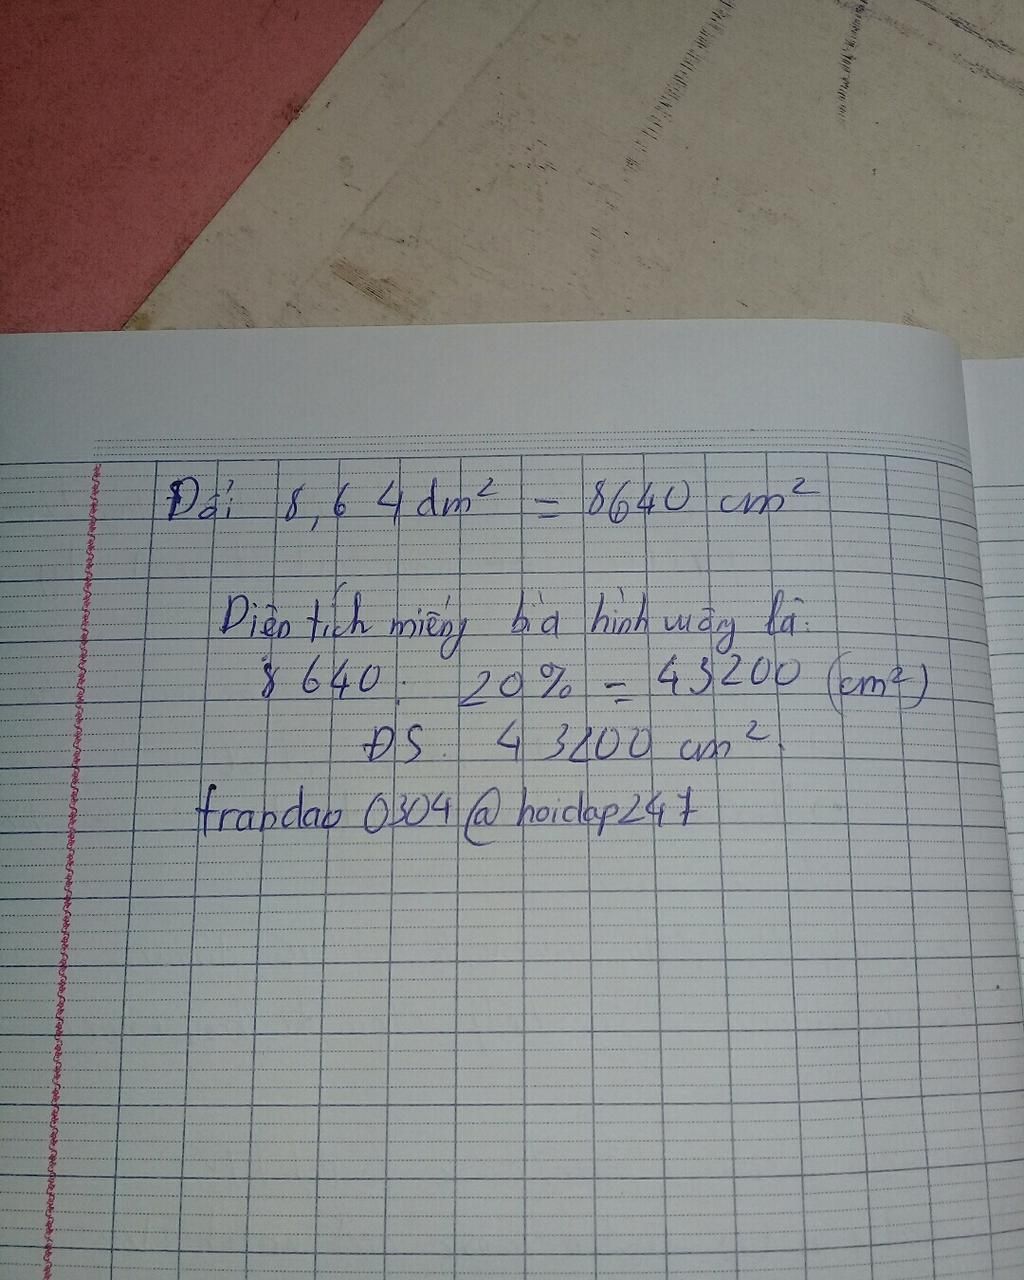 Đổi 8,64 dm² = 8640 cm²
Diện tích miếng bìa hình vuông là:
8640 : 20% = 43200 (cm²)
ĐS: 43200 cm².
trandao0304@hoidap247